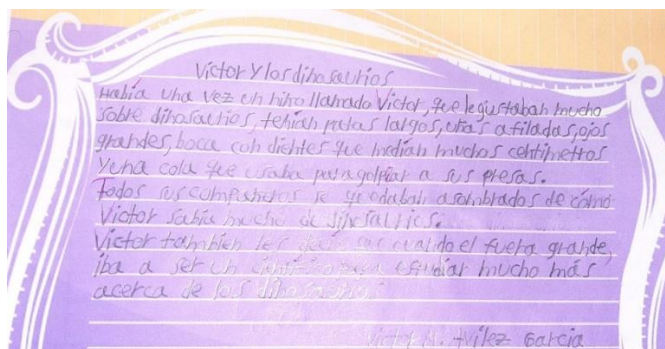 Victor y los dinosaurios
Había una vez un niño llamado Victor, que le gustaban mucho
sobre dinosaurios, tenian patas largos, uñas afiladas, ojos
grandes, boca con dientes que median muchos centimetros
y una cola que usaba para golpiar a sus presas.
Todos sus compañeros se quedaban asombrados de cómo
Victor sabia mucho de dinosaurios.
Victor tambien les decia que cuando el fuera grande,
iba a ser un para estudiar mucho más
acerca de los dinosaurios
Victor Avilez Garcia